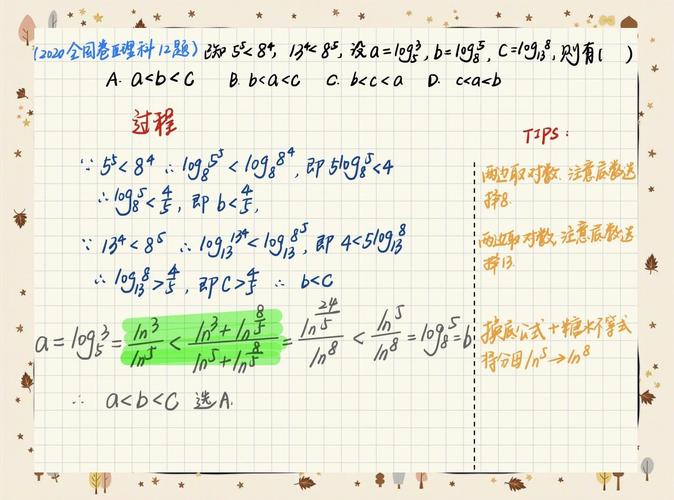 (2020全国卷Ⅲ理科12题) 已知 5⁵<8⁴, 13⁴<8⁵, 设a=log₅3, b=log₈5, C=log₁₃8, 则有( )
A. a<b<c B. b<a<c C. b<c<a D. c<a<b
过程
∵ 5⁵<8⁴ ∴ log₈5⁵<log₈8⁴, 即 5log₈5<4
∴ log₈5<4/5, 即 b<4/5,
∵ 13⁴<8⁵ ∴ log₁₃13⁴<log₁₃8⁵, 即 4<5log₁₃8
∴ log₁₃8>4/5, 即 C>4/5 ∴ b<C
a=log₅3=ln3/ln5<(ln3+ln8/5)/(ln5+ln8/5)=ln24/5/ln8<ln5/ln8=log₈5=b
∴ a<b<C 选A.
TIPS:
两边取对数, 注意底数选
择8.
两边取对数, 注意底数选
择13.
换底公式+糖水不等式
将分母ln5→ln8